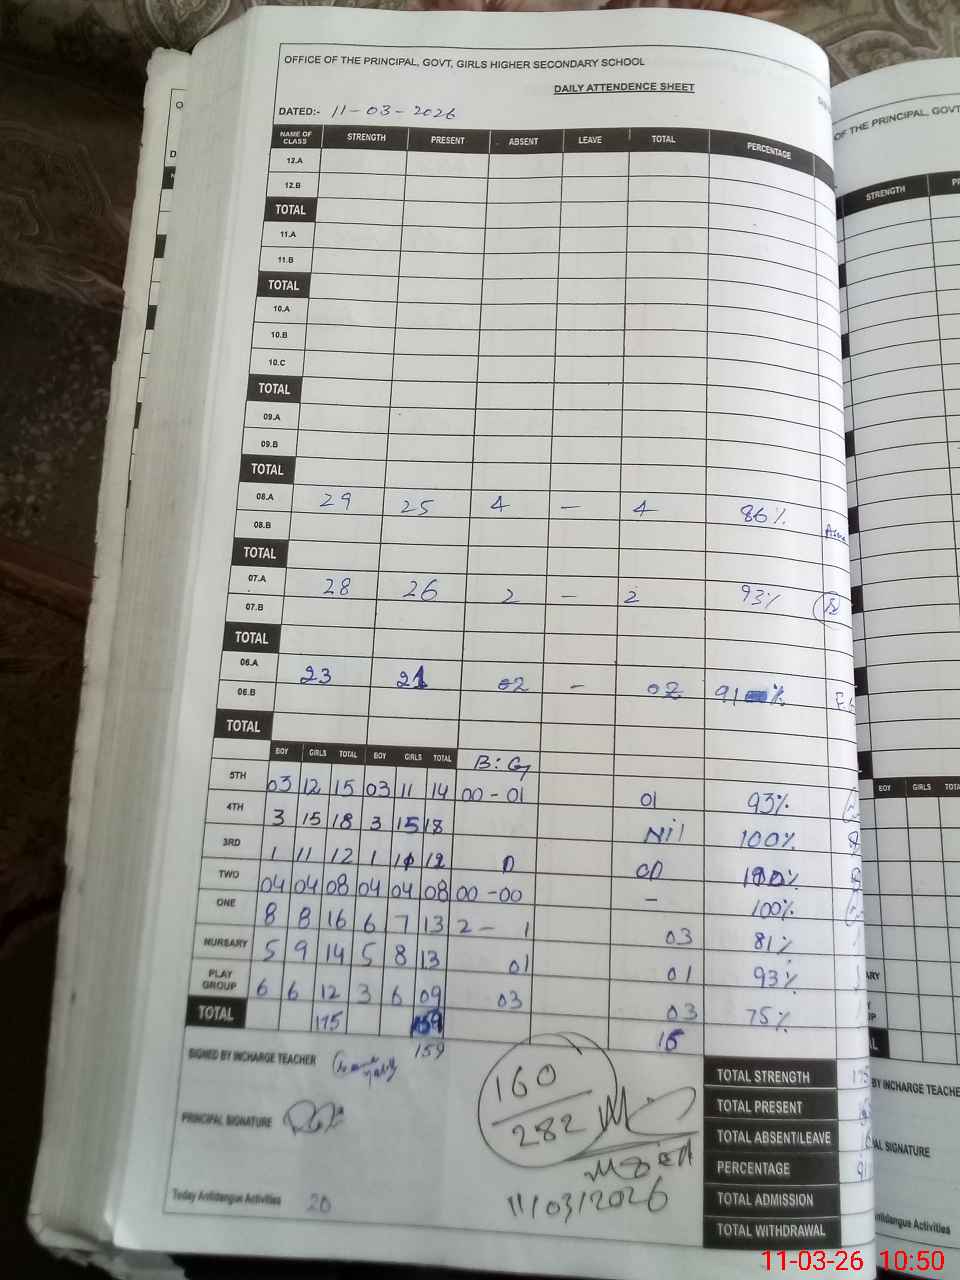 OFFICE OF THE PRINCIPAL, GOVT, GIRLS HIGHER SECONDARY SCHOOL
DAILY ATTENDENCE SHEET
DATED:- 11-03-2026
NAME OF CLASS STRENGTH PRESENT ABSENT LEAVE TOTAL PERCENTAGE
12.A
12.B
TOTAL
11.A
11.B
TOTAL
10.A
10.B
10.C
TOTAL
09.A
09.B
TOTAL
08.A 29 25 4 — 4 86%
08.B
TOTAL
07.A 28 26 2 — 2 93%
07.B
TOTAL
06.A 23 21 02 — 02 91%
06.B
TOTAL
BOY GIRLS TOTAL BOY GIRLS TOTAL B: G
5TH 03 12 15 03 11 14 00-01 01 93%
4TH 3 15 18 3 15 18 Nil 100%
3RD 1 11 12 1 12 100%
TWO 04 04 08 04 04 08 00-00 — 100%
ONE 8 8 16 6 7 13 2 - 1 03 81%
NURSARY 5 9 14 5 8 13 01 01 93%
PLAY GROUP 6 6 12 3 6 09 03 03 75%
TOTAL 175 159
159
SIGNED BY INCHARGE TEACHER
PRINCIPAL SIGNATURE
160
282
11/03/2026
Today Antidangue Activities 20
TOTAL STRENGTH
TOTAL PRESENT
TOTAL ABSENT/LEAVE
PERCENTAGE
TOTAL ADMISSION
TOTAL WITHDRAWAL
OF THE PRINCIPAL, GOVT
STRENGTH
BOY GIRLS
BY INCHARGE TEACHE
SIGNATURE
Antidangue Activities
11-03-26 10:50